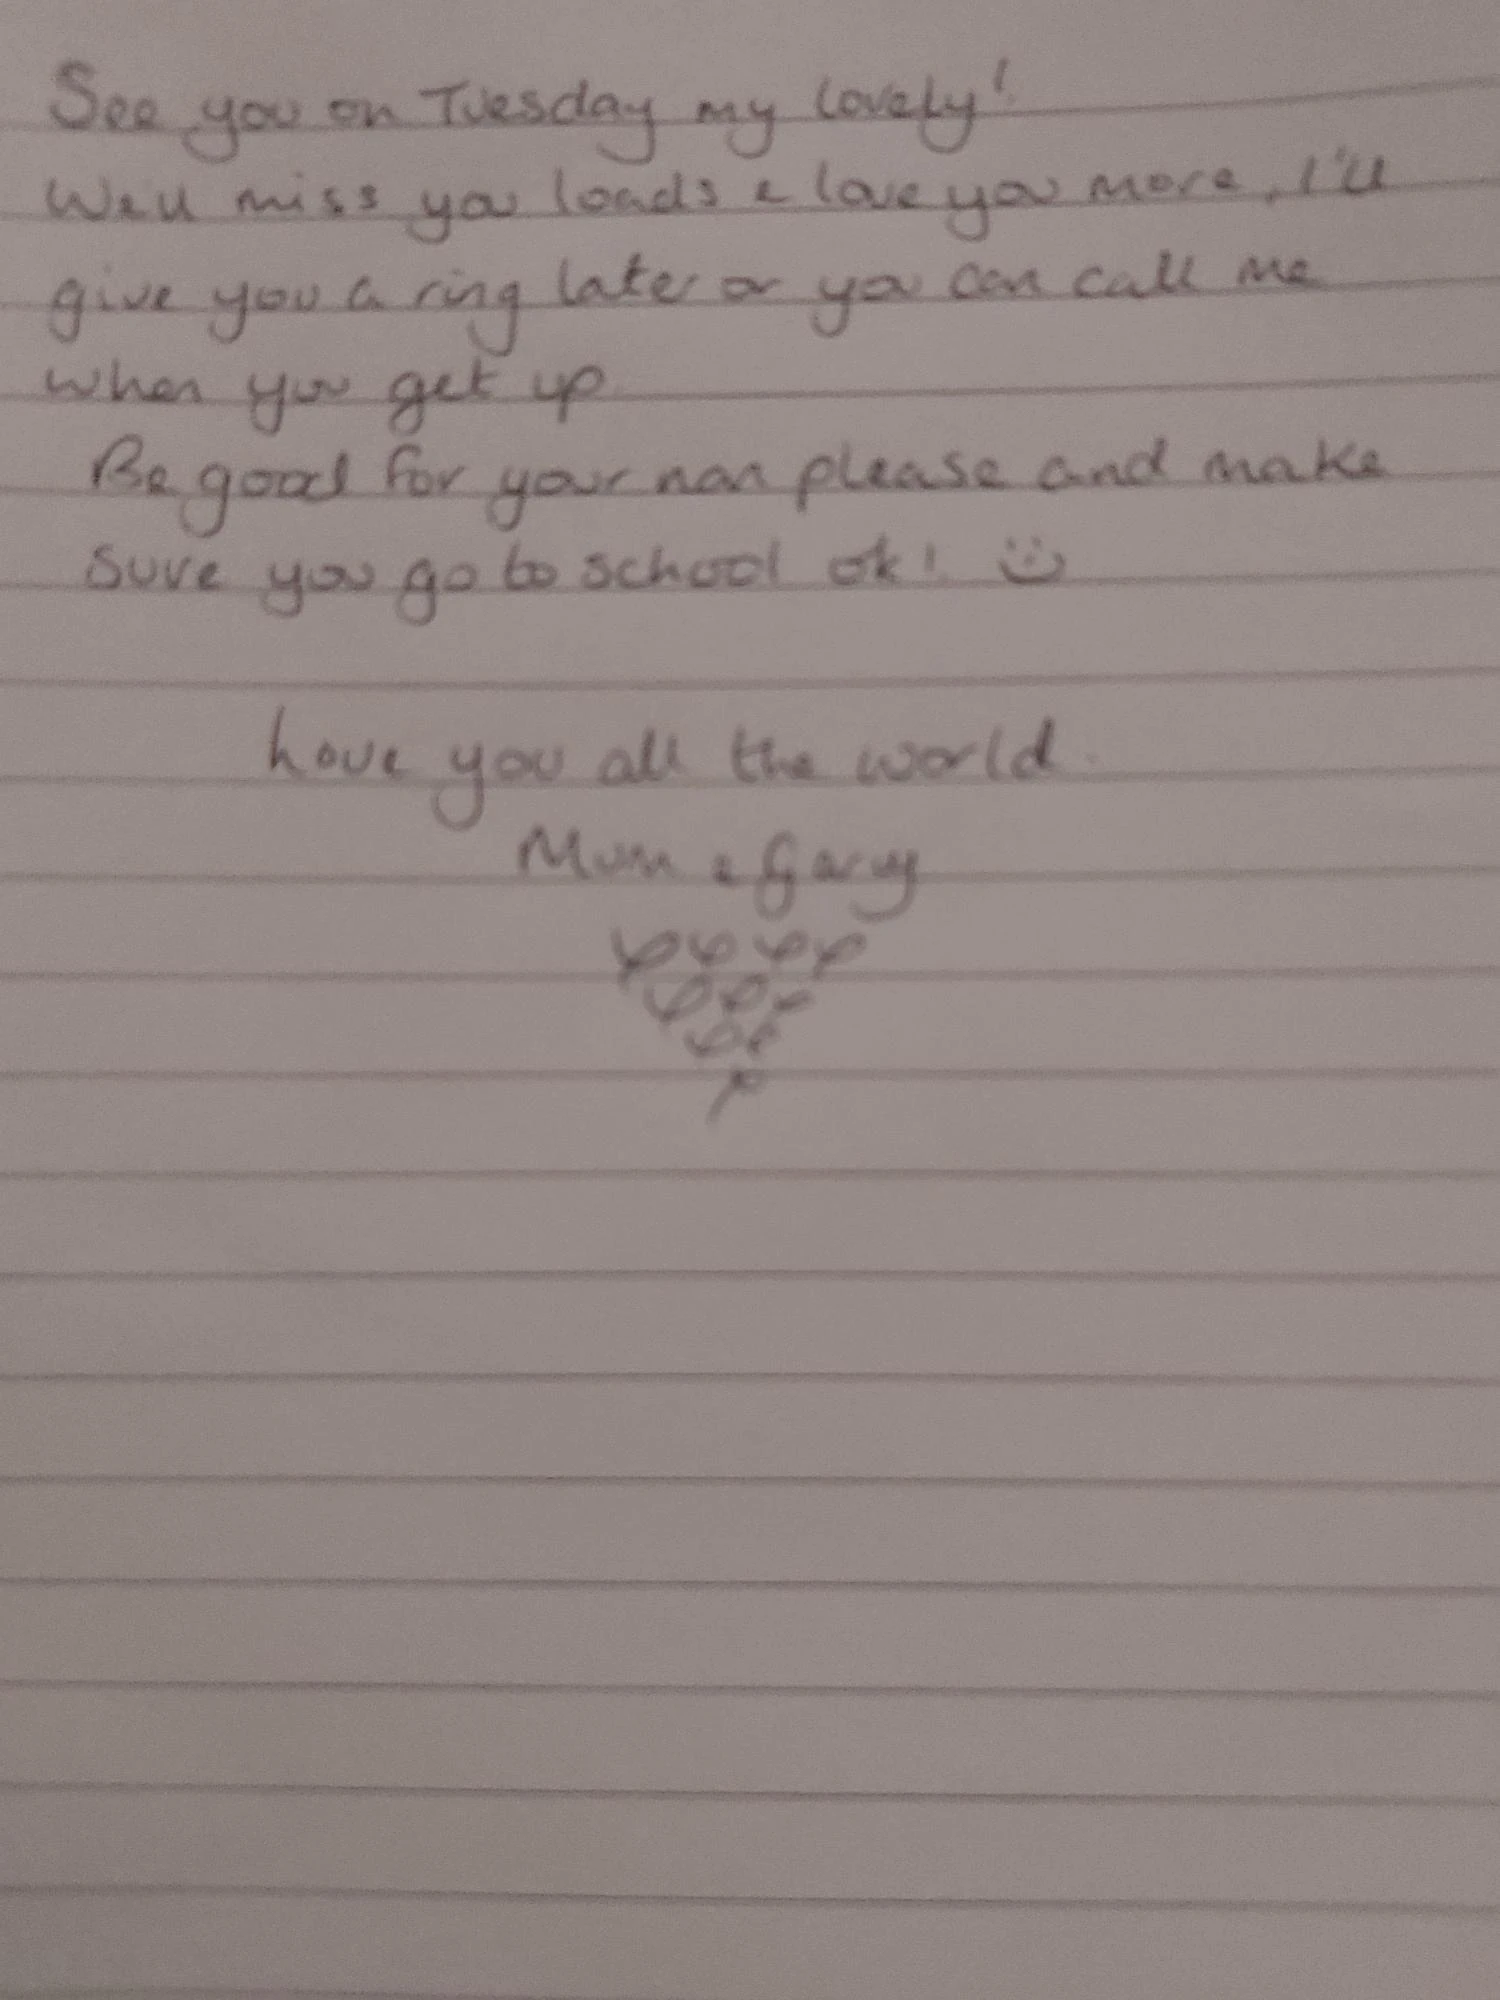 See you on Tuesday my lovely!
We'll miss you loads & love you more, I'll
give you a ring later or you can call me
when you get up
Be good for your nan please and make
sure you go to school ok! :)
Love you all the world.
Mum & Gary